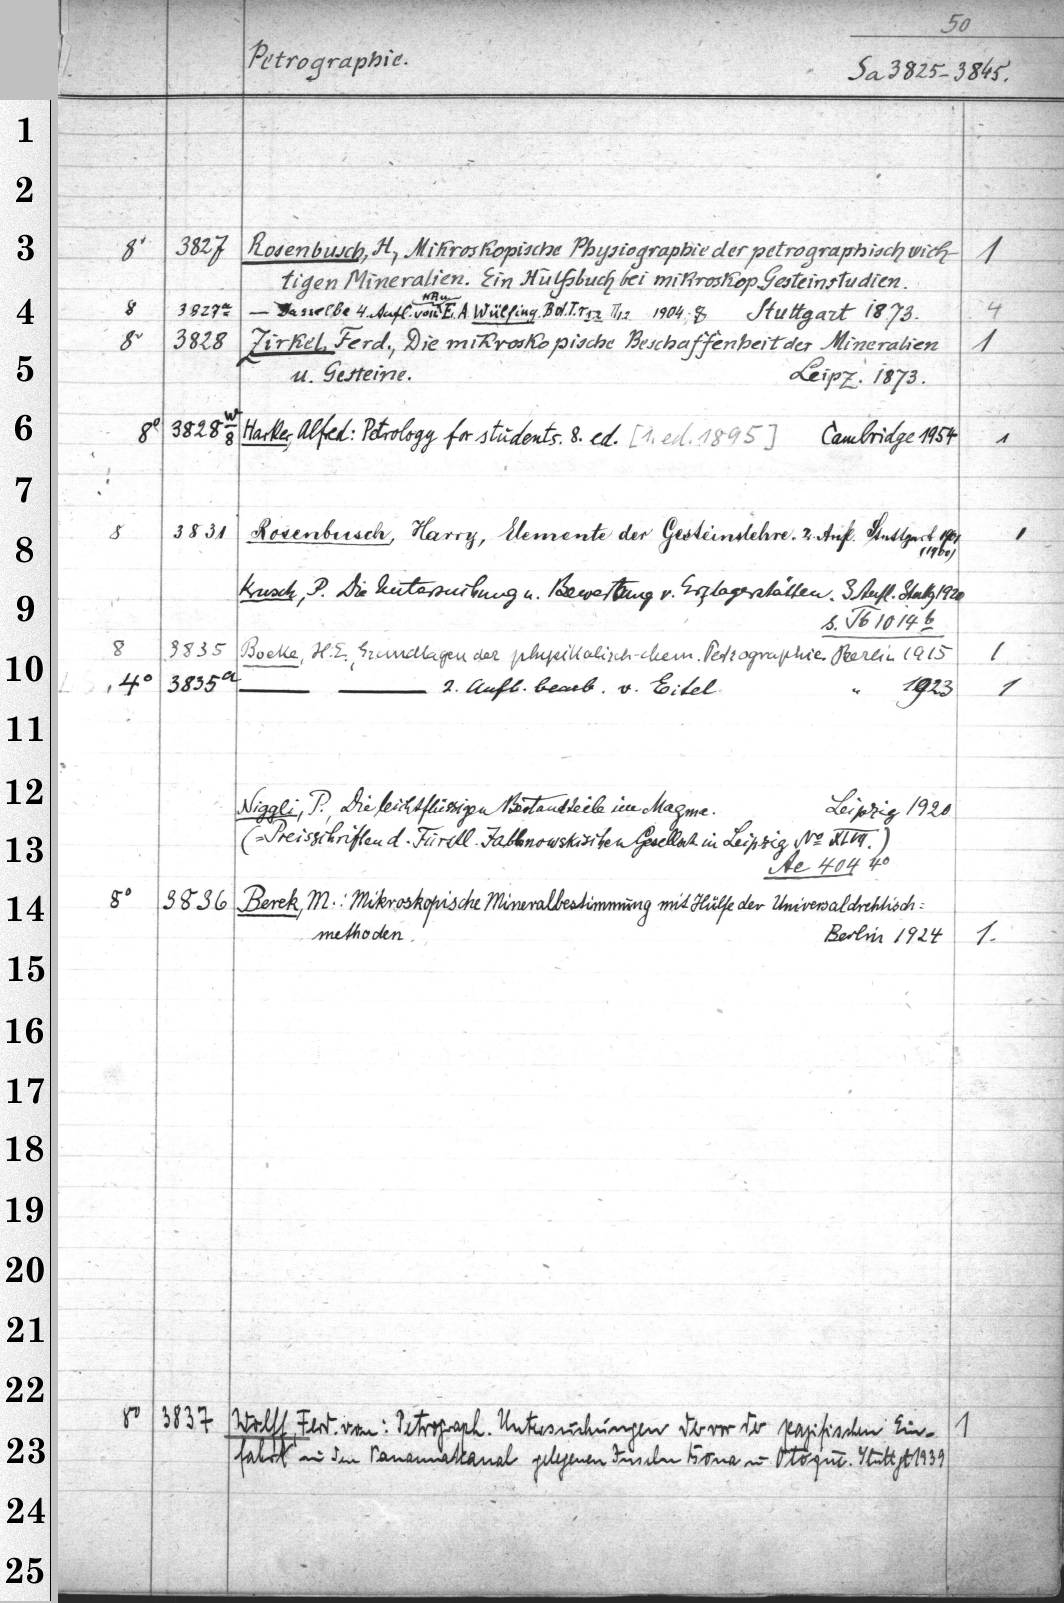 50
Petrographie.
Sa 3825-3845.
1
2
3
8° 3827 Rosenbusch, H, Mikroskopische Physiographie der petrographisch wich- 1
tigen Mineralien. Ein Hülfsbuch bei mikroskop. Gesteinstudien.
Stuttgart 1873.
4
8 3827a — Dasselbe 4. Aufl. von E. A. Wülfing. Bd. I. 1904 8 4
8° 3828 Zirkel, Ferd., Die mikroskopische Beschaffenheit der Mineralien 1
5
u. Gesteine. Leipz. 1873.
6
8° 3828 w/8 Harker, Alfed: Petrology for students. 8. ed. [1. ed. 1895] Cambridge 1954 1
7
8 3831 Rosenbusch, Harry, Elemente der Gesteinslehre. 2. Aufl. Stuttgart 1901 1
8
(1900)
Krusch, P. Die Untersuchung u. Bewertung v. Erzlagerstätten. 3 Aufl. Stuttg 1920
9
s. Tb 1014 b
8 3835 Boeke, H. E., Grundlagen der physikalisch-chem. Petrographie. Berlin 1915 1
10
4° 3835a — — 2. Aufl. bearb. v. Eitel " 1923 1
11
12
Niggli, P., Die leichtflüssigen Bestandteile im Magma. Leipzig 1920
(=Preisschriften d. Fürstl. Jablonowskischen Gesellsch. in Leipzig No XLVII.)
13
Ae 404 4°
14
8° 3836 Berek, M.: Mikroskopische Mineralbestimmung mit Hülfe der Universaldrehtisch=
methoden. Berlin 1924 1.
15
16
17
18
19
20
21
22
8° 3837 Wolff, Ferd. von: Petrograph. Untersuchungen der vor der pazifischen Ein- 1
23
fahrt in den Panamakanal gelegenen Inseln Bona u. Otoque. Stuttgt 1939
24
25